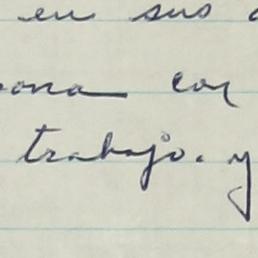 en sus
ona con
trabajo. y